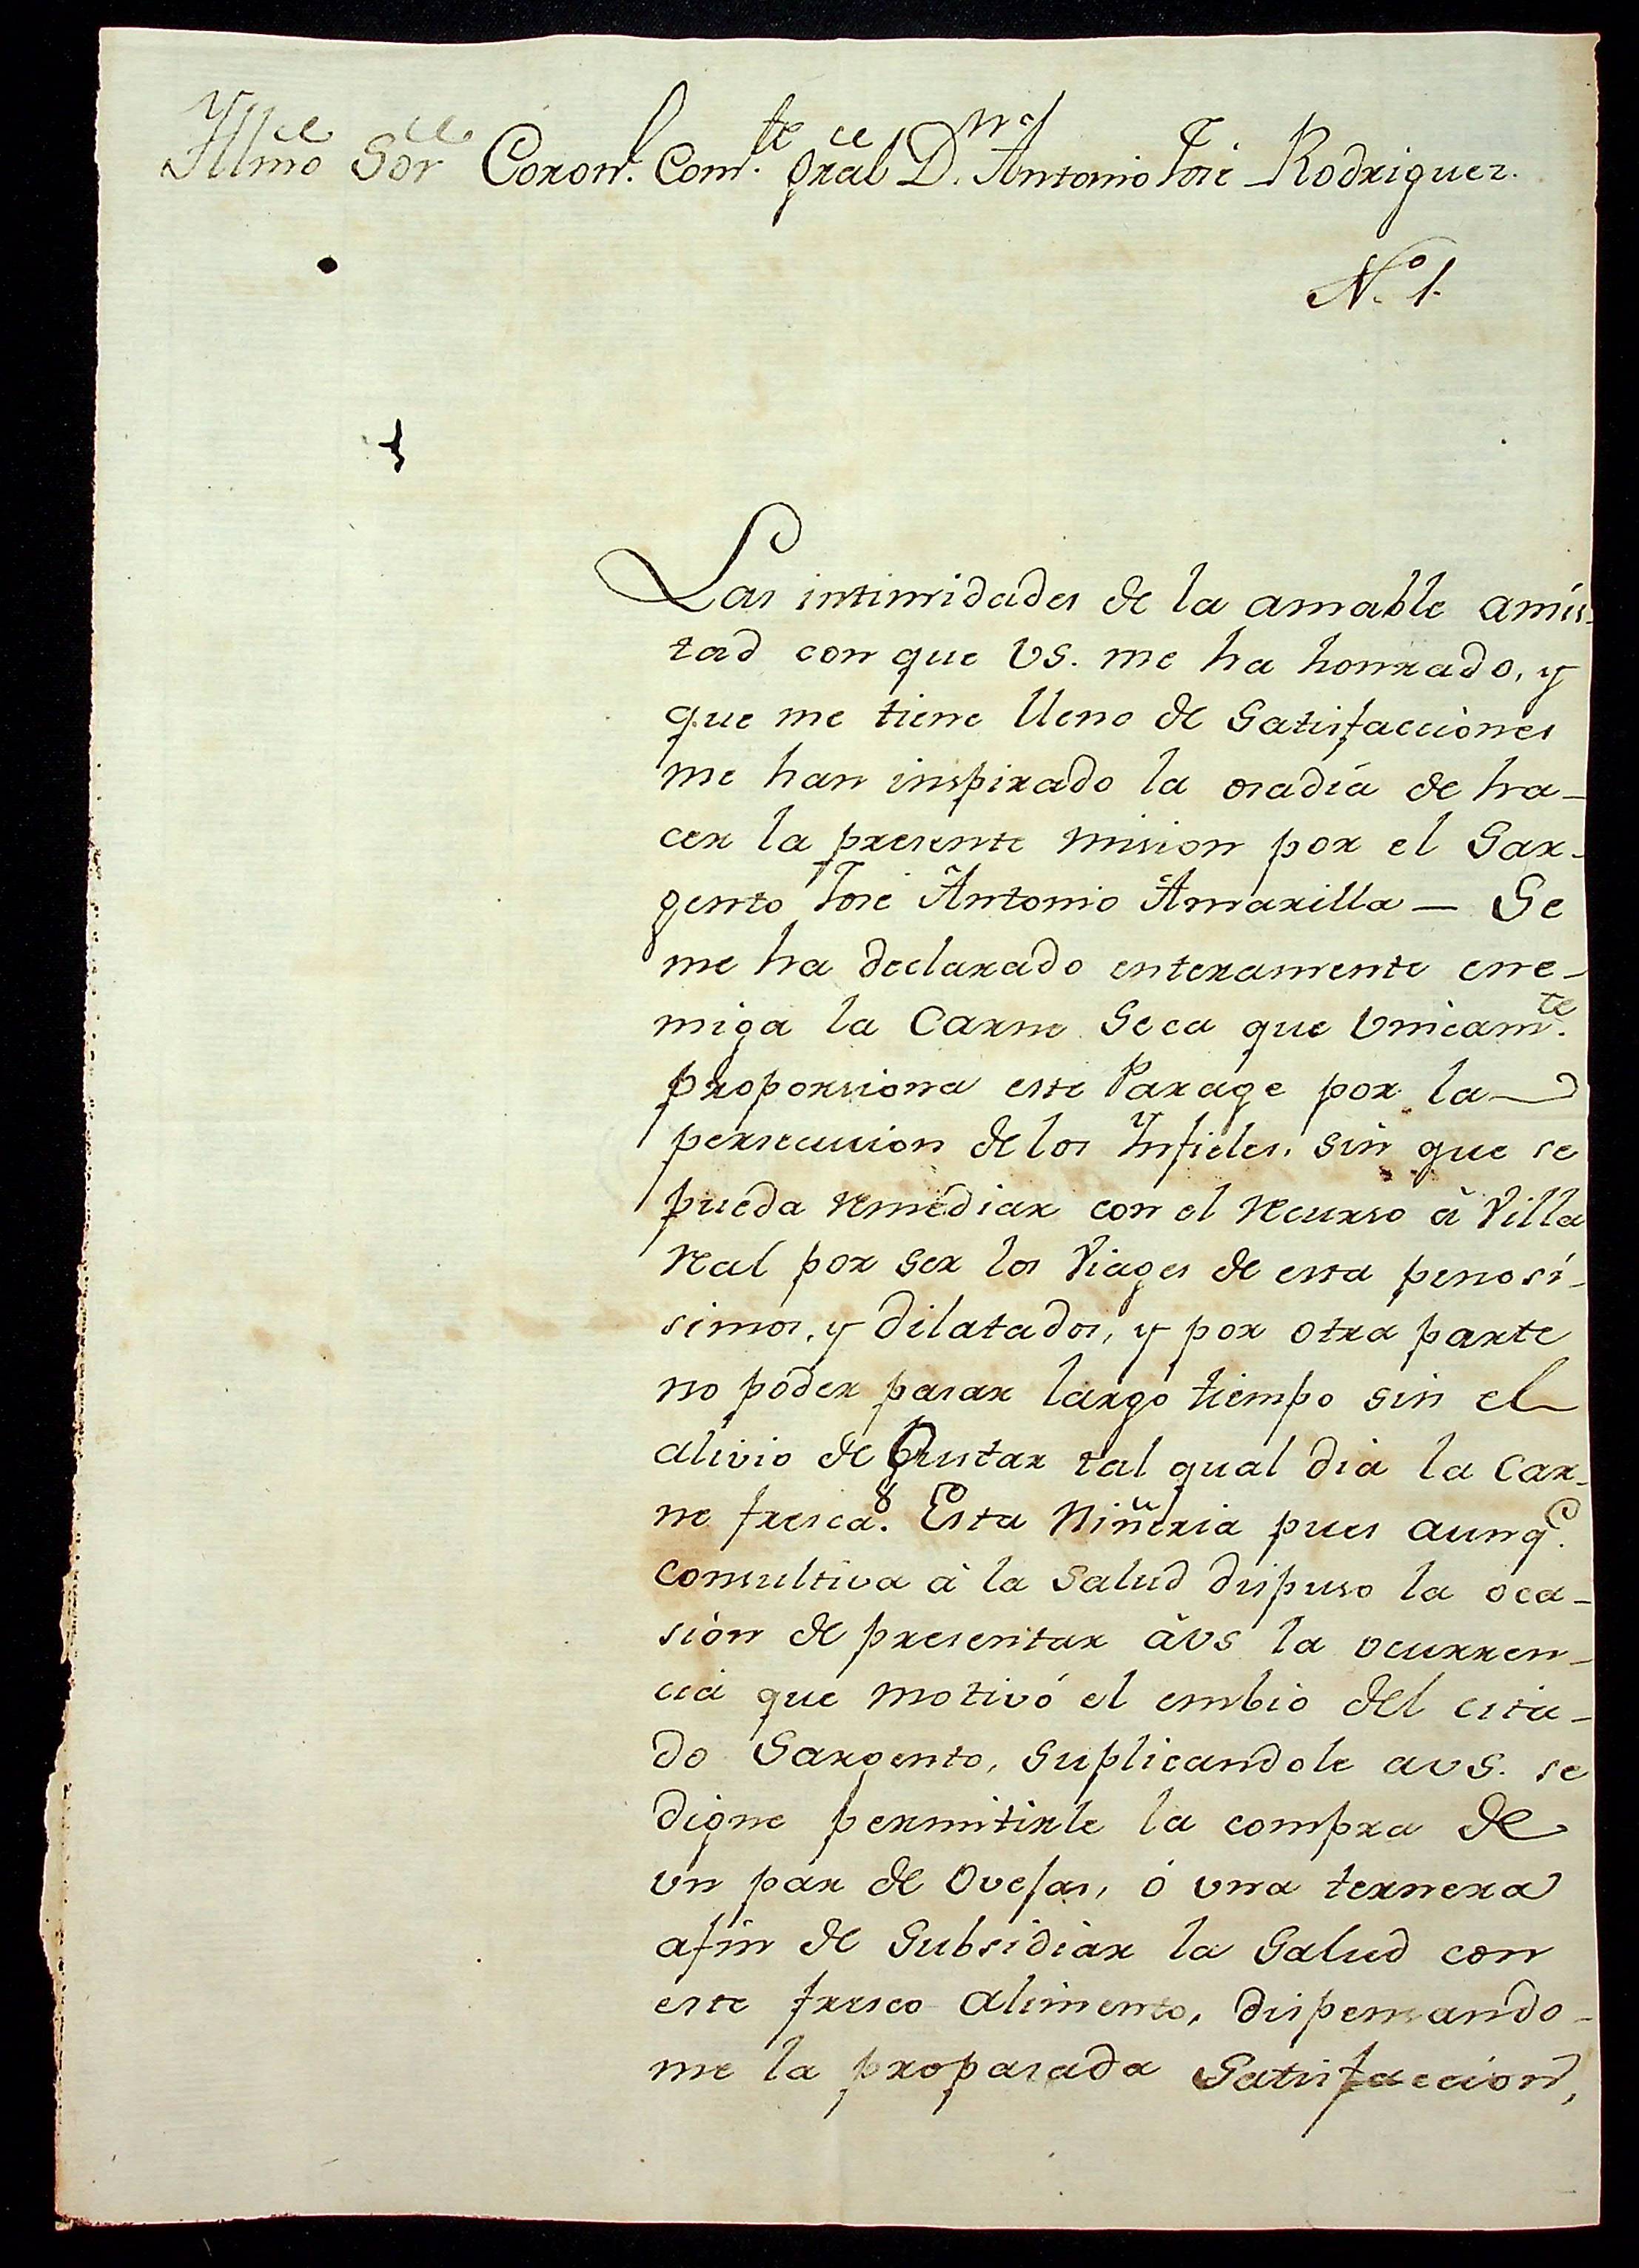 Yllmo Sor Coron.l Com.te gral D.n Antonio José Rodriguez.
N.o 1.
Las intimidades de la amable amis-
tad con que VS. me ha honrado, y
que me tiene lleno de Satisfacciones
me han inspirado la osadía de ha-
cer la presente mision por el Sar-
gento José Antonio Amarilla — Se
me ha declarado enteramente ene-
miga la Carne Seca que Vnicam.te
proporsiona este Parage por la
persecucion de los Ynfieles, sin que se
pueda remediar con el recurso à Villa
real por ser los Viages de esta penosí-
simos, y dilatados, y por otra parte
no poder pasar largo tiempo sin el
alivio de Gustar tal qual dia la Car-
ne fresca. Esta Niñeria pues aunq.e
consultiva à la Salud dispuso la oca-
sion de presentar àVS la ocurren-
cia que motivó el embio del cita-
do Sargento, Suplicandole aVS. se
digne permitirle la compra de
vn par de Ovejas, ó vna ternera
afin de Subsidiar la Salud con
este fresco alimento, dispensando-
me la propasada Satisfaccion,